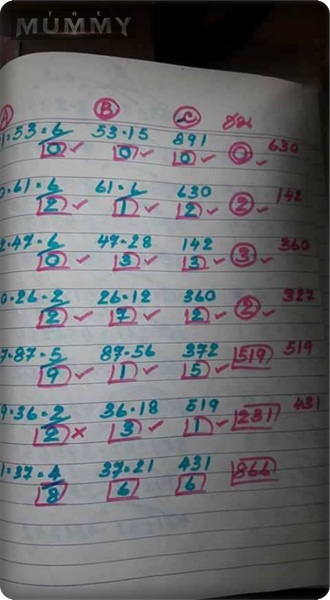 THE
MUMMY
A B C รวม
1=53=6 53-15 891
0 0 0 0 630
0=61=6 61=6 630
2 1 2 2 142
2=47=6 47-28 142
0 3 3 3 360
0=26=2 26-12 360
2 7 2 2 327
7=87=5 87-56 372
9 1 5 519 519
9=36=2 36-18 519
2 3 1 231 431
1=37=4 37=21 431
8 6 6 866